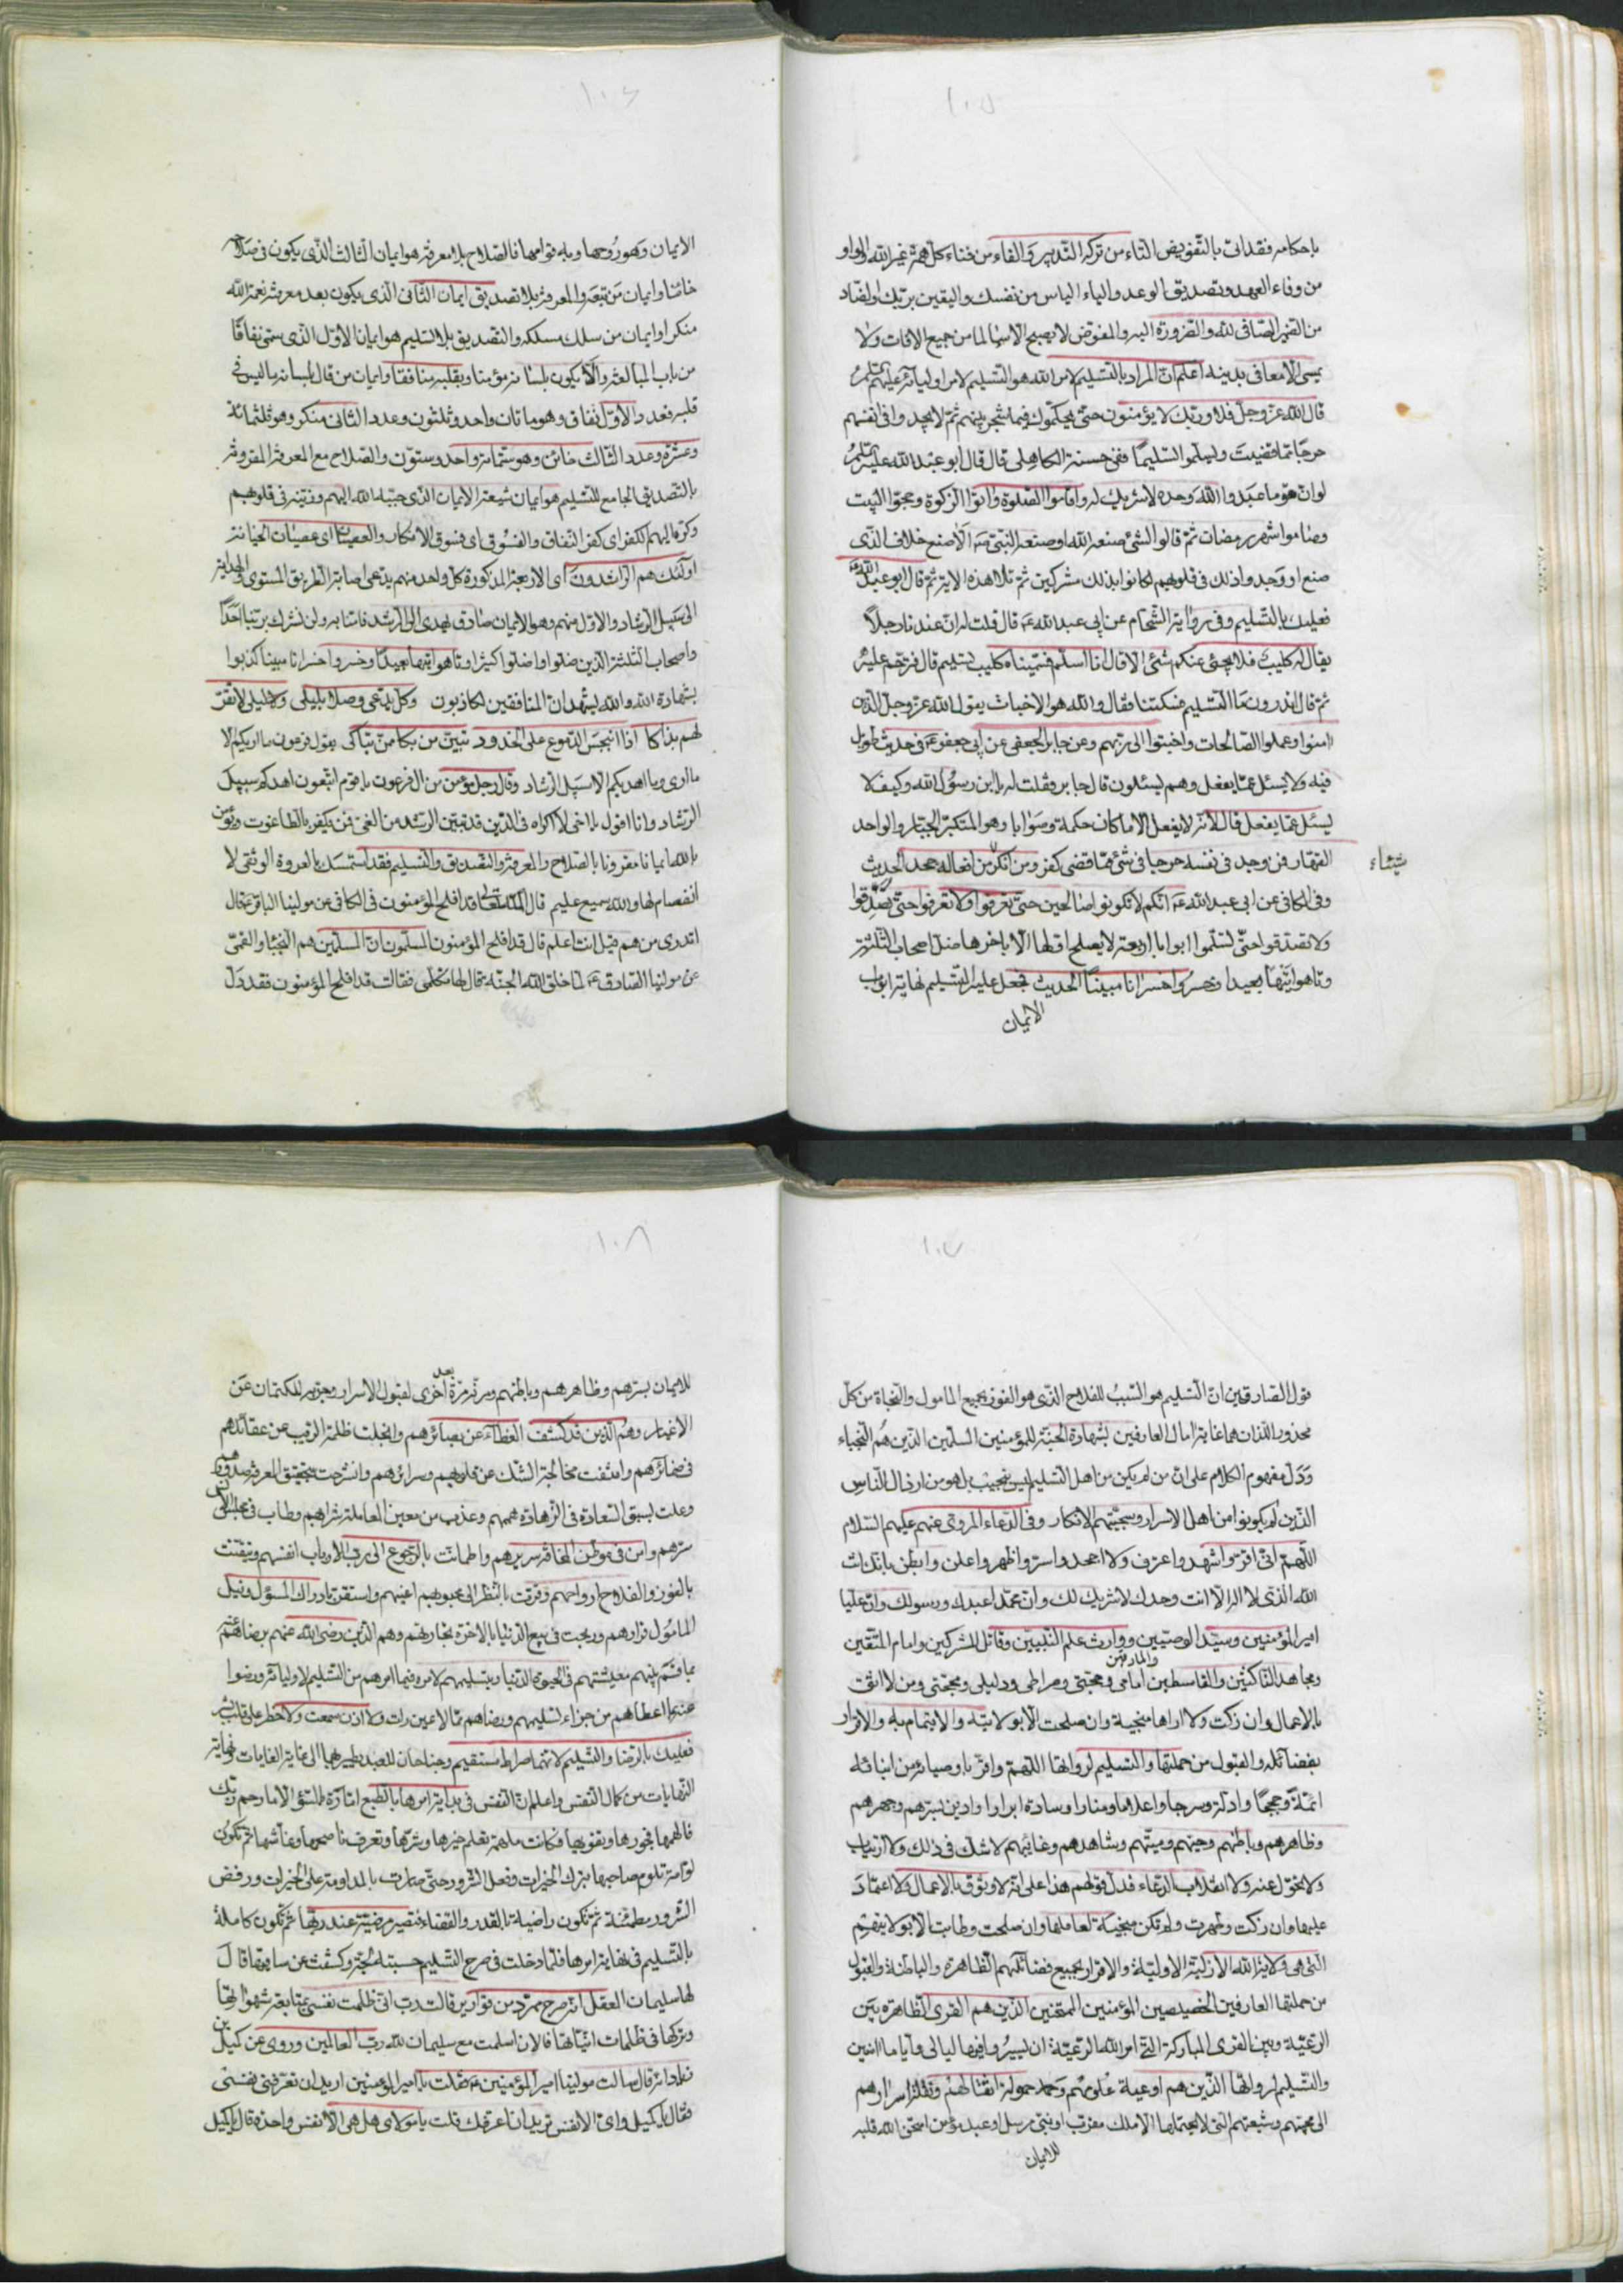 ١٠٥
باحكامه فقد اتى بالتفويض التاء من تركه التدبير والفاء من فناء كل همة غير الله والواو
من وفاء العهد وتصديق الوعد والياء الياس من نفسك واليقين بربك والضاد
من الضمير الصافى لله والضرورة اليه والمفوض لا يصبح الا سالما من جميع الافات ولا
يمسى الا معافى بدينه اعلم ان المراد بالتسليم لامر الله هو التسليم لامر اوليائه عليهم
قال الله عز وجل فلا وربك لا يؤمنون حتى يحكموك فيما شجر بينهم ثم لا يجدوا فى انفسهم
حرجا مما قضيت ويسلموا تسليما ففى حسنة الكاهلى قال قال ابو عبد الله عليه
لو ان قوما عبدوا الله وحده لا شريك له واقاموا الصلوة واتوا الزكوة وحجوا البيت
وصاموا شهر رمضان ثم قالوا الشئ صنعه الله او صنعه النبى الا صنع خلاف الذى
صنع او وجدوا ذلك فى قلوبهم لكانوا بذلك مشركين ثم تلا هذه الاية ثم قال ابو عبد الله
فعليك بالتسليم وفى رواية الشحام عن ابى عبد الله قال قلت له ان عندنا رجلا
يقال له كليب فلا يجئ عنكم شئ الا قال انا اسلم فسميناه كليب تسليم قال فترحم عليه
ثم قال اتدرون ما التسليم فسكتنا فقال والله هو الاخبات بقول الله عز وجل الذين
امنوا وعملوا الصالحات واخبتوا الى ربهم وعن جابر الجعفى عن ابى جعفر فى حديث طويل
فيه ولا يسئل عما يفعل وهم يسئلون قال جابر فقلت له يا ابن رسول الله وكيف لا
يسئل عما يفعل قال لانه لا يفعل الا ما كان حكمة وصوابا وهو المتكبر الجبار والواحد
القهار فمن وجد فى نفسه حرجا فى شئ مما قضى كفر ومن انكر من افعاله جحد الحديث
وفى الكافى عن ابى عبد الله انكم لا تكونوا صالحين حتى تعرفوا ولا تعرفوا حتى تصدقوا
ولا تصدقوا حتى تسلموا ابوابا اربعة لا يصلح اولها الا باخرها ضل اصحاب الثلثة
وتاهوا تيها بعيدا وخسروا خسرانا مبينا الحديث فجعل عليه التسليم نهاية ابواب
الايمان
١٠٦
الايمان وهو روحها وبه قوامها فالصلاح بلا معرفة هو ايمان الثالث الذى يكون فى
خائنا وايمان من تبعه والمعرفة بلا تصديق ايمان الثانى الذى يكون بعد معرفة نعمة الله
منكرا وايمان من سلك مسلكه والتصديق بلا تسليم هو ايمان الاول الذى سمى نفاقا
من باب المبالغة والا يكون بلسانه مؤمنا وبقلبه منافقا وايمان من قال بلسانه ما ليس فى
قلبه فعدد الاول نفاق وهو ماتان واحد وثلثون وعدد الثانى منكر وهو ثلثمائة
وعشرة وعدد الثالث خائن وهو ستمائة واحد وستون والصلاح مع المعرفة المقرونة
بالتصديق الجامع للتسليم هو ايمان شيعته الايمان الذى حببه الله اليهم وزينه فى قلوبهم
وكره اليهم الكفر اى كفر النفاق والفسوق اى فسوق الانكار والعصيان اى عصيان الخيانة
اولئك هم الراشدون اى الاربعة المذكورة كل واحد منهم يدعى اصابة الطريق المستوى والهداية
الى سبيل الرشاد والاول منهم وهو الايمان صادق يهدى الى الرشد فامنا به ولن نشرك بربنا احدا
واصحاب الثلثة الذين ضلوا واضلوا كثيرا وتاهوا تيها بعيدا وخسروا خسرانا مبينا كذبوا
بشهادة الله والله يشهد ان المنافقين لكاذبون وكل يدعى وصلا بليلى وليلى لا تقر
لهم بذاكا اذا انبجس الدموع على الخدود تبين من بكا ممن تباكى يقول فرعون ما اريكم الا
ما ارى وما اهديكم الا سبيل الرشاد وقال رجل مؤمن من ال فرعون يا قوم اتبعون اهدكم سبيل
الرشاد وانا اقول يا اخى لا اكراه فى الدين قد تبين الرشد من الغى فمن يكفر بالطاغوت ويؤمن
بالله ايمانا مقرونا بالصلاح والمعرفة والتصديق والتسليم فقد استمسك بالعروة الوثقى لا
انفصام لها والله سميع عليم قال الله تعالى قد افلح المؤمنون فى الكافى عن مولينا الباقر قال
اتدرى من هم قيل انت اعلم قال قد افلح المؤمنون المسلمون ان المسلمين هم النجباء والقمى
عن مولينا الصادق لما خلق الله الجنة قال لها تكلمى فقالت قد افلح المؤمنون فقد دل
١٠٧
قول الصادقين ان التسليم هو السبب للفلاح الذى هو الفوز بجميع المامول والنجاة من كل
محذور اللذان هما غاية امال العارفين بشهادة الجنة للمؤمنين المسلمين الذين هم النجباء
ودل مفهوم الكلام على ان من لم يكن من اهل التسليم ليس بنجيب بل هو من ارذال الناس
الذين لم يكونوا من اهل الاسرار وسجيتهم الانكار وفى الدعاء المروى عنهم عليهم السلام
اللهم انى اقر واشهد واعترف ولا اجحد واسر واظهر واعلن وابطن بانك انت
الله الذى لا اله الا انت وحدك لا شريك لك وان محمدا عبدك ورسولك وان عليا
امير المؤمنين وسيد الوصيين ووارث علم النبيين وقاتل المشركين وامام المتقين
ومجاهد الناكثين والقاسطين والمارقين امامى وحجتى وصراطى ودليلى ومحجتى ومن لا اثق
بالاعمال وان زكت ولا اراها منجية وان صلحت الا بولايته والايتمام به والاقرار
بفضائله والقبول من حملتها والتسليم لرواتها اللهم واقر باوصيائه من ابنائه
ائمة وحججا وادلة وسرجا واعلاما ومنارا وسادة ابرارا وادين بسرهم وجهرهم
وظاهرهم وباطنهم وحيهم وميتهم وشاهدهم وغائبهم لا شك فى ذلك ولا ارتياب
ولا تحول عنه ولا انقلاب الدعاء فدل قولهم هذا على انه لا وثوق بالاعمال ولا اعتماد
عليها وان زكت وطهرت ولم تكن منجية لعاملها وان صلحت وطابت الا بولايتهم
التى هى ولاية الله الازلية الاولية والاقرار بجميع فضائلهم الظاهرة والباطنة والقبول
من حملتها العارفين الخصيصين المؤمنين الممتحنين الذين هم القرى الظاهرة بين
الرعية وبين القرى المباركة التى امر الله الرعية ان يسيروا فيها ليالى واياما امنين
والتسليم لرواتها الذين هم اوعية علومهم وحمولة اثقالهم ونقلة اسرارهم
الى محبتهم وشيعتهم التى لا يحتملها الا ملك مقرب او نبى مرسل او عبد مؤمن امتحن الله قلبه
للايمان
١٠٨
للايمان بسرهم وظاهرهم وباطنهم ومرة بعد اخرى لقبول الاسرار للكتمان عن
الاغيار وهم الذين قد كشف الغطاء عن بصائرهم وانجلت ظلمة الريب عن عقائدهم
فى ضمائرهم وانتفت مخالجة الشك عن قلوبهم وسرائرهم وانشرحت بتحقيق المعرفة صدورهم
وعلت لسبق السعادة فى الزهادة هممهم وعذب من معين المعاملة شرابهم وطاب فى مجلس الانس
سرهم وامن فى موطن المخافة سربهم واطمانت بالرجوع الى رب الارباب انفسهم وتيقنت
بالفوز والفلاح ارواحهم وقرت بالنظر الى محبوبهم اعينهم واستقر بادراك المسؤل ونيل
المامول قرارهم وربحت فى بيع الدنيا بالاخرة تجارتهم وهم الذين رضى الله عنهم برضائهم
بما قسم بينهم معيشتهم فى الحيوة الدنيا وبتسليمهم لامره فيما امرهم من التسليم لاوليائه ورضوا
عنه بما اعطاهم من جزاء تسليمهم ورضاهم مما لا عين رات ولا اذن سمعت ولا خطر على قلب بشر
فعليك بالرضا والتسليم لانهما صراط مستقيم وجناحان للعبد يطير بهما الى غاية الغايات ونهاية
النهايات من كمال النفس واعلم ان النفس فى بداية امرها بالطبع امارة بالسؤ الا ما رحم ربك
فالهمها فجورها وتقويها فكانت ملهمة تعلم خيرها وشرها وتعرف ناصحها وغاشها ثم تكون
لوامة تلوم صاحبها بترك الخيرات وفعل الشرور حتى صارت بالمداومة على الخيرات ورفض
الشرور مطمئنة ثم تكون راضية بالقدر والقضاء فتصير مرضية عند ربها ثم تكون كاملة
بالتسليم فى نهاية امرها فلما دخلت فى صرح التسليم حسبته لجة وكشفت عن ساقيها قال
لها سليمان العقل انه صرح ممرد من قوارير قالت رب انى ظلمت نفسى بمتابعة شهواتها
وتركها فى ظلمات انياتها فالان اسلمت مع سليمان لله رب العالمين وروى عن كميل بن
زياد انه قال سالت مولينا امير المؤمنين فقلت يا امير المؤمنين اريد ان تعرفنى نفسى
فقال يا كميل واى الانفس تريد ان اعرفك قلت يا مولاى هل هى الا نفس واحدة قال يا كميل